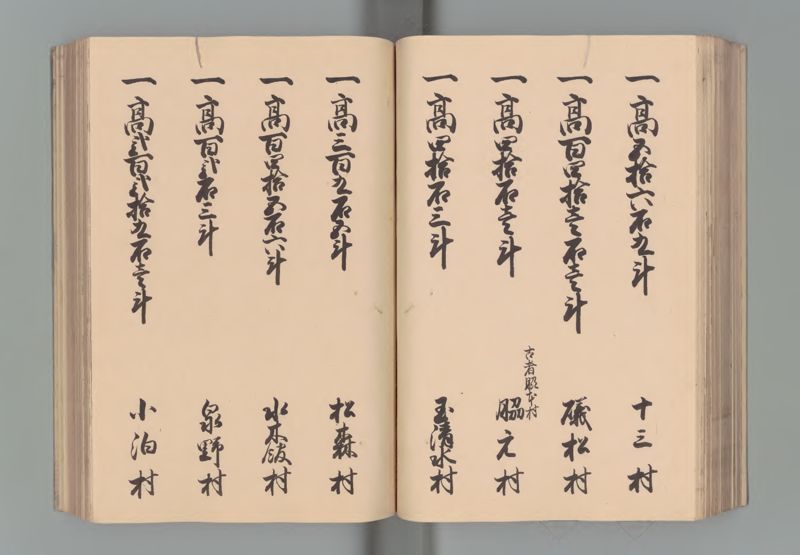 一高五拾六石九斗 十三村
一高百四拾壱石壱斗 磯松村
一高四拾石壱斗 脇元村
古者脇本村
一高四拾石三斗 玉清水村
一高三百九石五斗 松森村
一高百四拾五石六斗 水木飯村
一高百弐石三斗 泉野村
一高弐百弐拾九石壱斗 小泊村